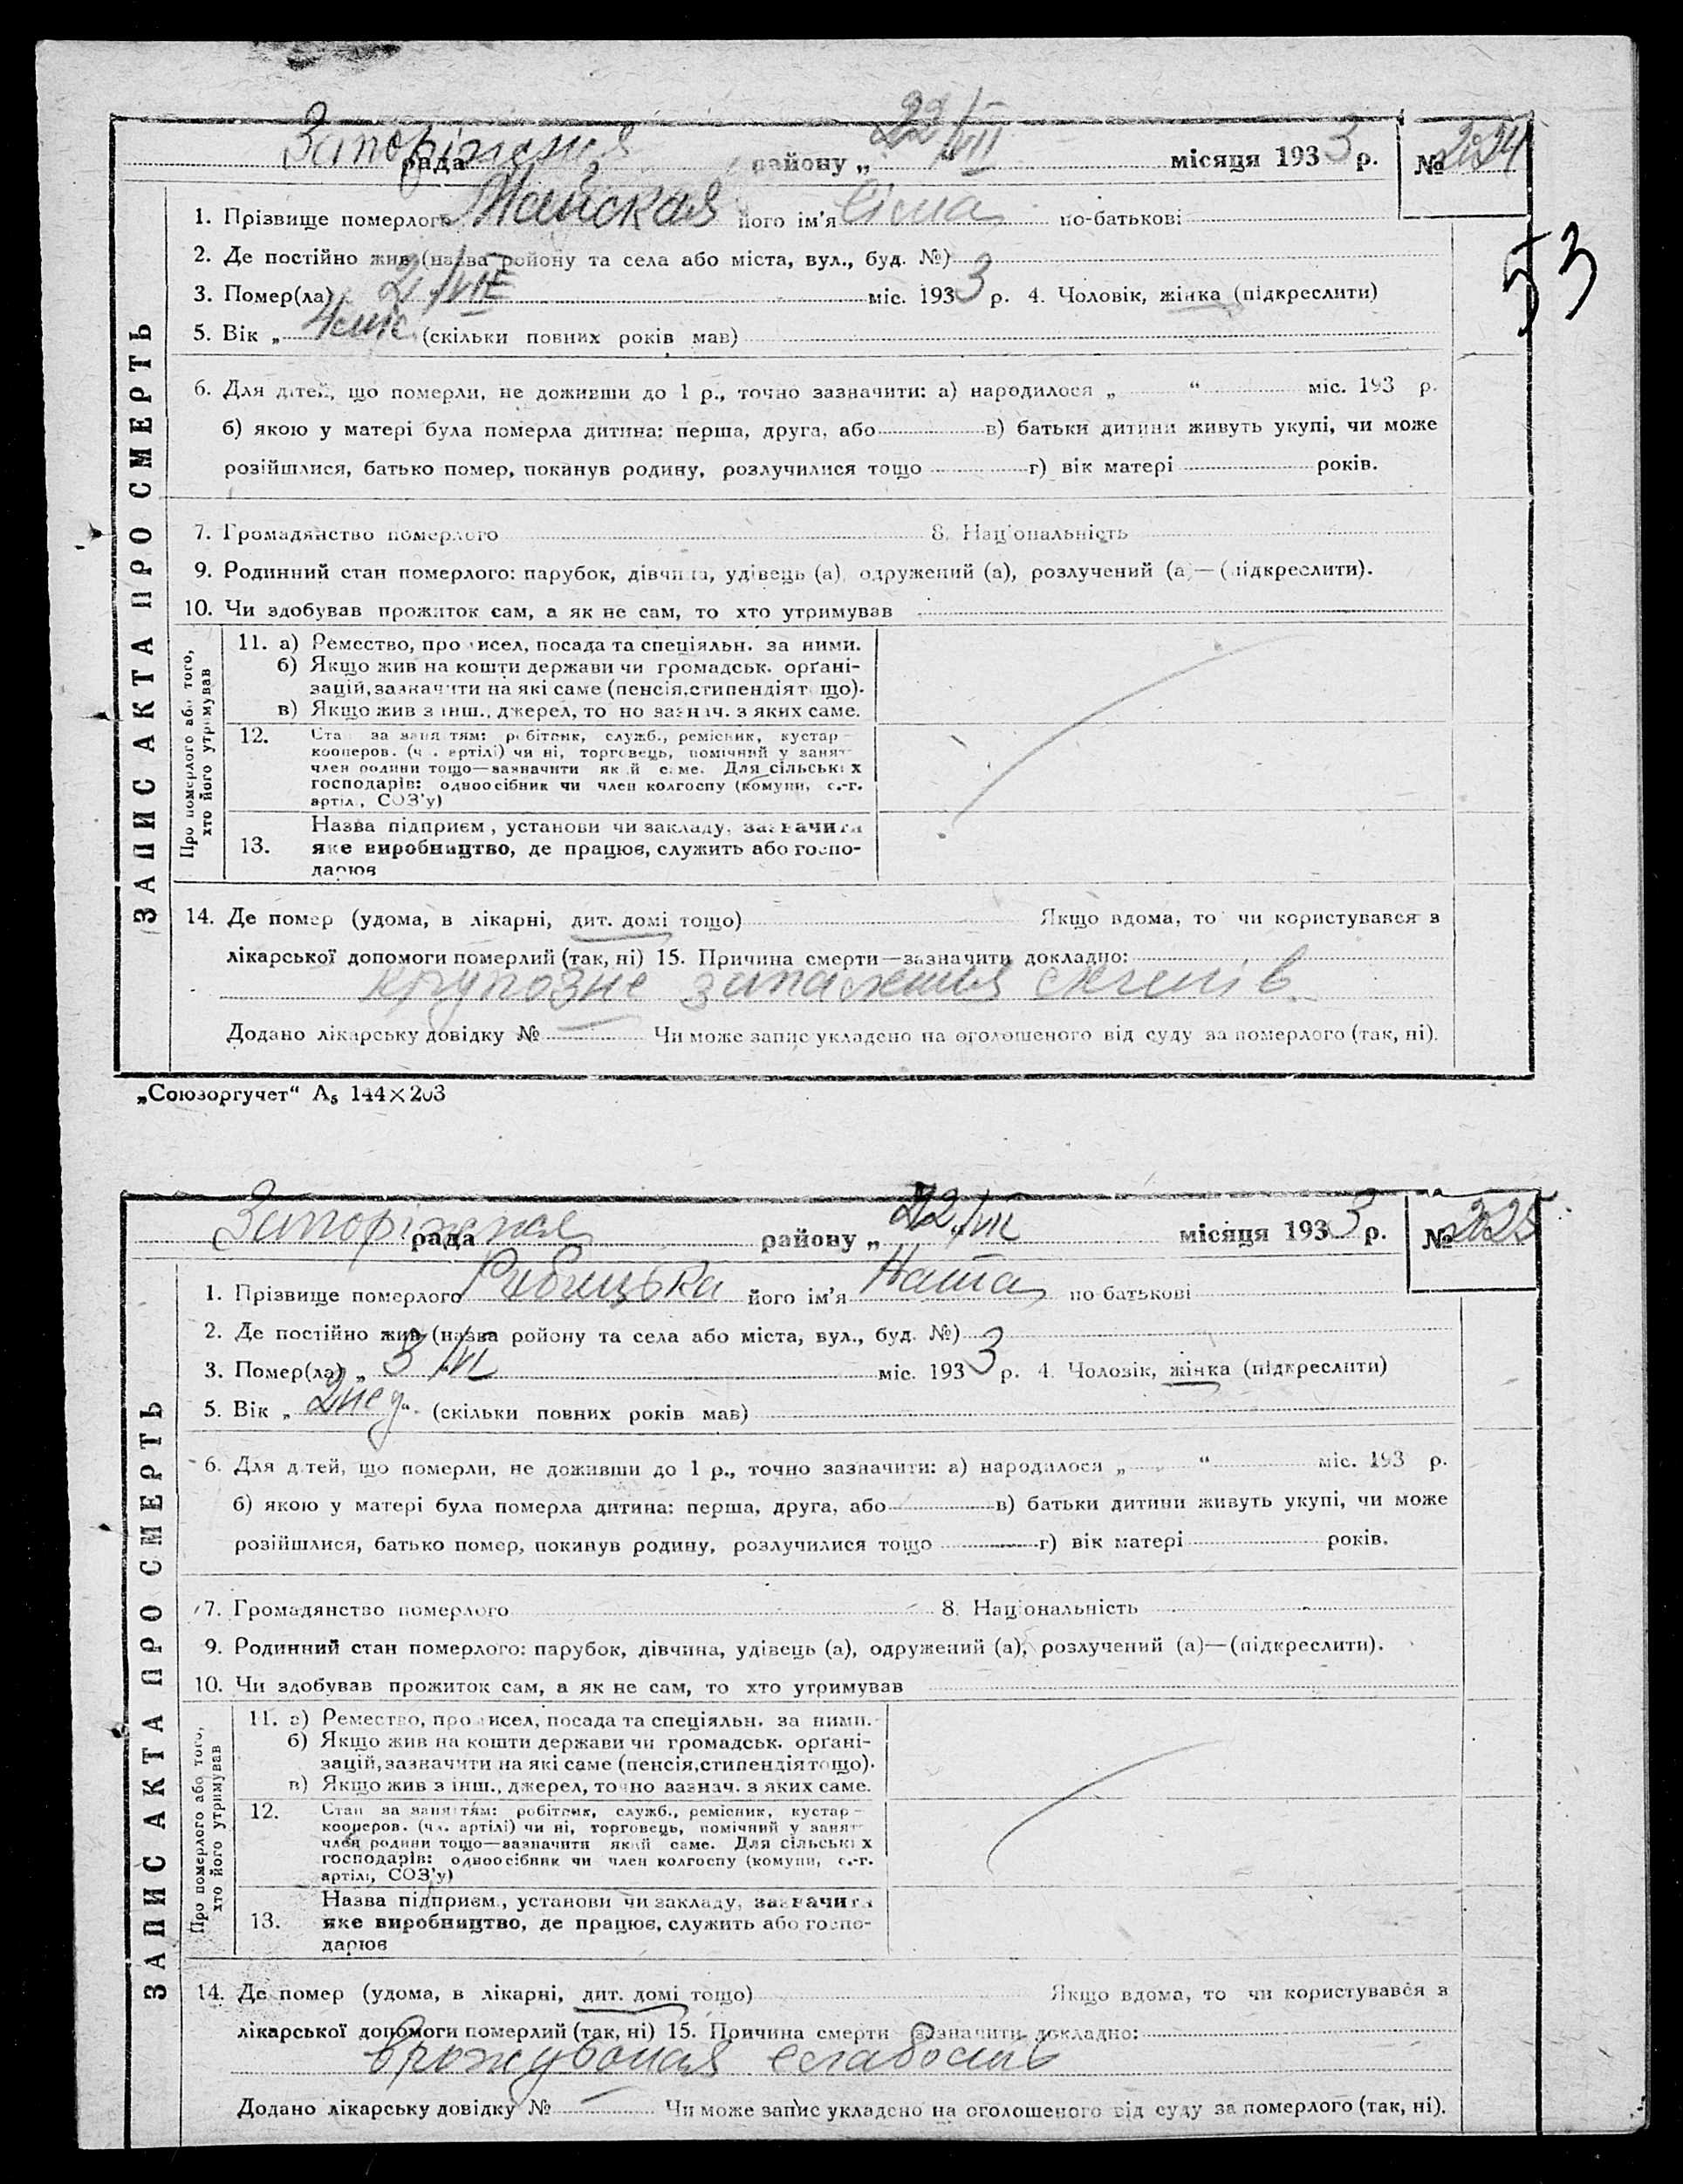 Запоріжська рада району „22/VII місяця 1933 р. № 2024
53
ЗАПИС АКТА ПРО СМЕРТЬ
1. Прізвище померлого Майская його ім'я Сіма по-батькові
2. Де постійно жив (назваройону та села або міста, вул., буд. №)
3. Помер(ла) 2/VII міс. 1933 р. 4. Чоловік, жінка (підкреслити)
5. Вік „ 4 міс. (скільки повних років мав)
6. Для дітей, що померли, не доживши до 1 р., точно зазначити: а) народилося „ “ міс. 193 р.
б) якою у матері була померла дитина: перша, друга, або в) батьки дитини живуть укупі, чи може
розійшлися, батько помер, покинув родину, розлучилися тощо г) вік матері років.
7. Громадянство померлого 8. Національність
9. Родинний стан померлого: парубок, дівчина, удівець (а), одружений (а), розлучений (а)—(підкреслити).
10. Чи здобував прожиток сам, а як не сам, то хто утримував
Про померлого або того, хто його утримував
11. а) Ремество, промисел, посада та спеціяльн. за ними.
б) Якщо жив на кошти держави чи громадськ. орґані-
зацій, зазначити на які саме (пенсія, стипендія тощо).
в) Якщо жив з інш., джерел, точно зазнач. з яких саме.
12. Стан за заняттям: робітник, служб., ремісник, кустар—
кооперов. (чл. артілі) чи ні, торговець, помічний у занят
член родини тощо—зазначити який саме. Для сільських
господарів: одноосібник чи член колгоспу (комуни, с.-г.
артілі, СОЗ'у)
13. Назва підприєм., установи чи закладу, зазначити
яке виробництво, де працює, служить або госпо-
дарює
14. Де помер (удома, в лікарні, дит. домі тощо) Якщо вдома, то чи користувався з
лікарської допомоги померлий (так, ні) 15. Причина смерти—зазначити докладно:
крупозне запалення легенів
Додано лікарську довідку № — Чи може запис укладено на оголошеного від суду за померлого (так, ні).
„Союзоргучет“ А₅ 144×203
Запоріжская рада району „22/VII місяця 1933 р. № 2025
ЗАПИС АКТА ПРО СМЕРТЬ
1. Прізвище померлого Рибицька його ім'я Ната по-батькові
2. Де постійно жив (назва ройону та села або міста, вул., буд. №)
3. Помер(ла) „ 3/VII міс. 1933 р. 4. Чоловік, жінка (підкреслити)
5. Вік „ 2 нед “ (скільки повних років мав)
6. Для дітей, що померли, не доживши до 1 р., точно зазначити: а) народилося „ “ міс. 193 р.
б) якою у матері була померла дитина: перша, друга, або в) батьки дитини живуть укупі, чи може
розійшлися, батько помер, покинув родину, розлучилися тощо г) вік матері років.
7. Громадянство померлого 8. Національність
9. Родинний стан померлого: парубок, дівчина, удівець (а), одружений (а), розлучений (а)—(підкреслити).
10. Чи здобував прожиток сам, а як не сам, то хто утримував
Про померлого або того, хто його утримував
11. а) Ремество, промисел, посада та спеціяльн. за ними.
б) Якщо жив на кошти держави чи громадськ. орґані-
зацій, зазначити на які саме (пенсія, стипендія тощо).
в) Якщо жив з інш., джерел, точно зазнач. з яких саме.
12. Стан за заняттям: робітник, служб., ремісник, кустар—
кооперов. (чл. артілі) чи ні, торговець, помічний у занят
член родини тощо—зазначити який саме. Для сільських
господарів: одноосібник чи член колгоспу (комуни, с.-г.
артілі, СОЗ'у)
13. Назва підприєм., установи чи закладу, зазначити
яке виробництво, де працює, служить або госпо-
дарює
14. Де помер (удома, в лікарні, дит. домі тощо) Якщо вдома, то чи користувався з
лікарської допомоги померлий (так, ні) 15. Причина смерти зазначити докладно:
врожденая слабость
Додано лікарську довідку № — Чи може запис укладено на оголошеного від суду за померлого (так, ні).